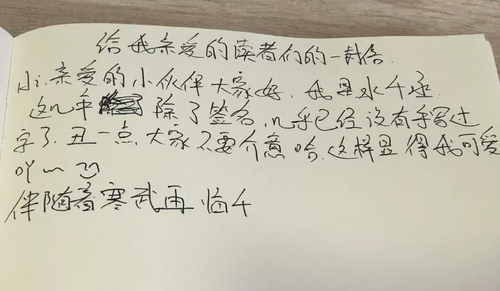 给我亲爱的读者们的一封信.
Hi.亲爱的小伙伴大家好.我是水千丞
这几年 除了签名,几乎已经没有手写过
字了.丑一点,大家不要介意哈,这样显得我可爱
吖~
伴随着寒武再临